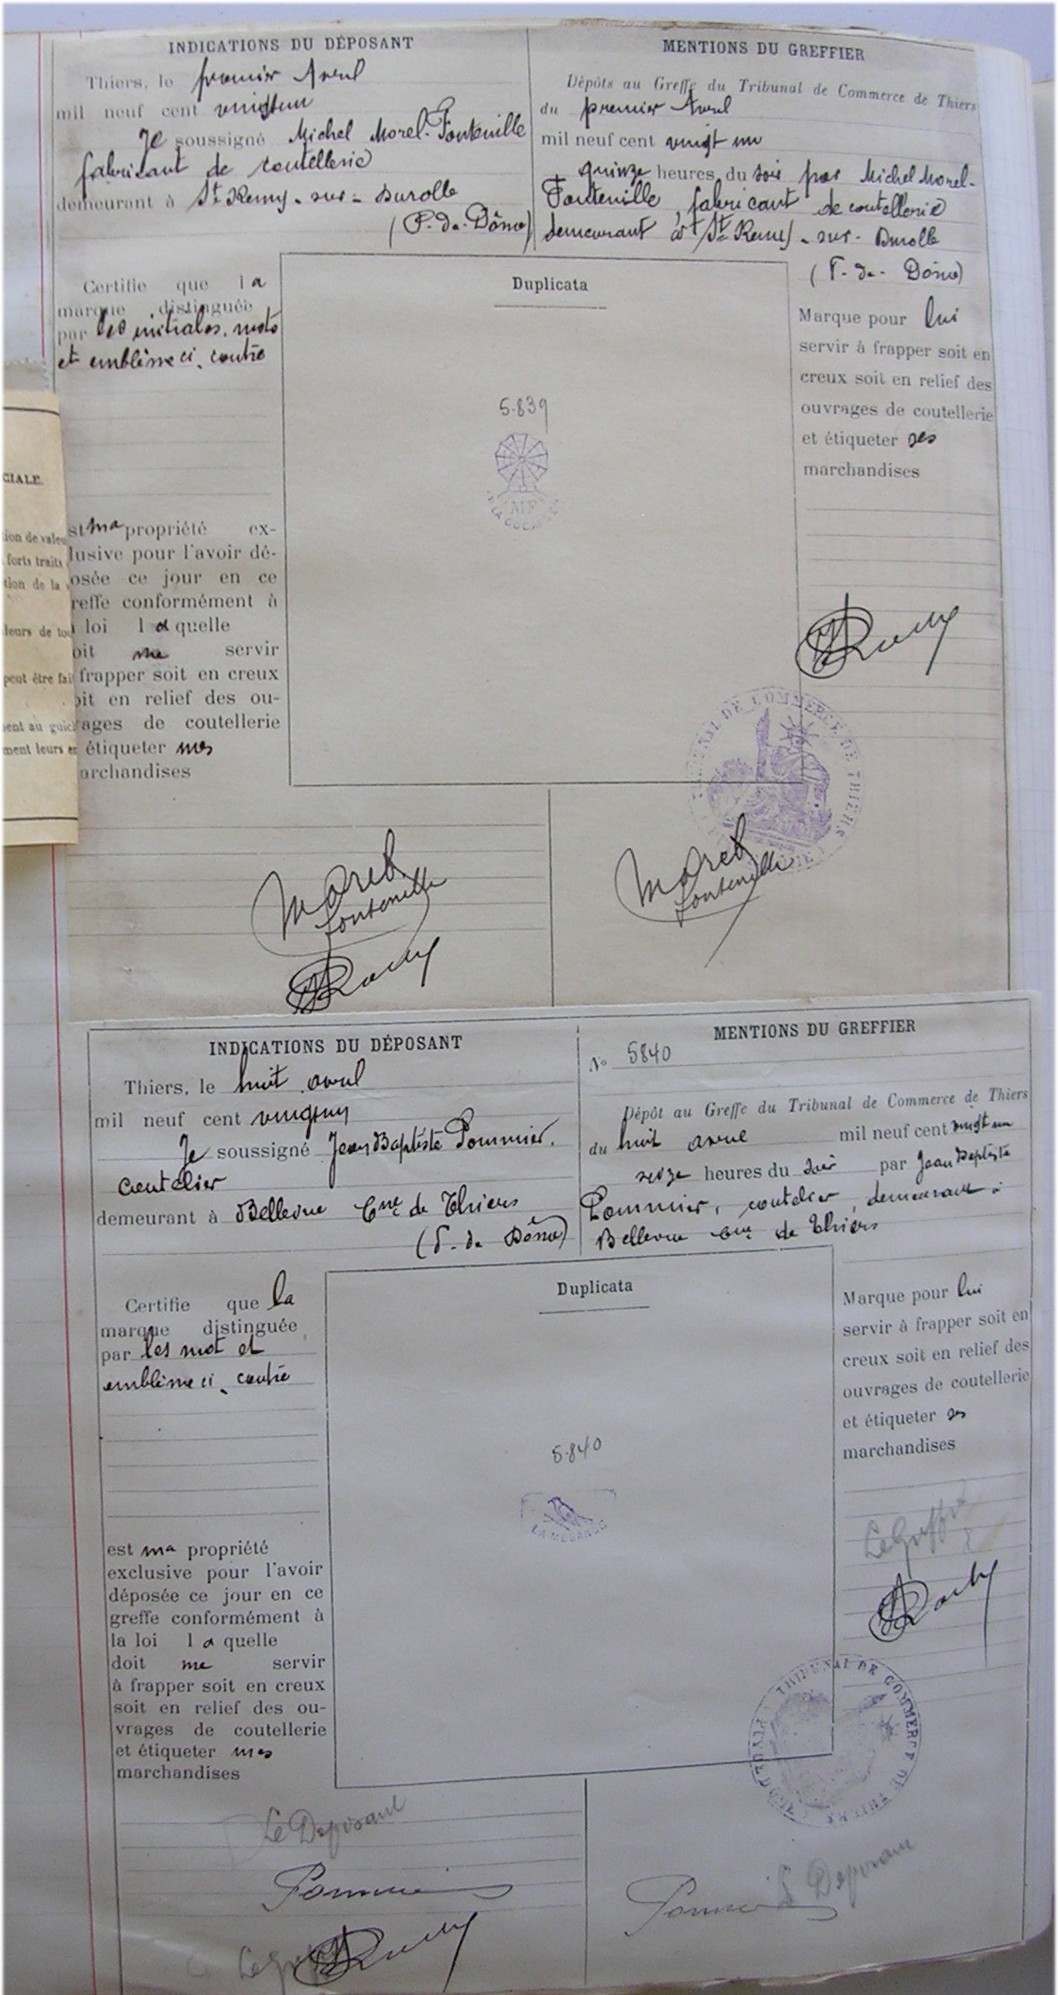 INDICATIONS DU DÉPOSANT
Thiers, le premier Avril
mil neuf cent vingt un
Je soussigné Michel Morel-Fontenille
fabricant de coutellerie
demeurant à St Remy-sur-Durolle
(P.-de-Dôme)
Certifie que la
marque distinguée
par les initiales, mots
et emblème ci-contre
st ma propriété ex-
lusive pour l'avoir dé-
osée ce jour en ce
reffe conformément à
loi la quelle
oit me servir
frapper soit en creux
oit en relief des ou-
rages de coutellerie
étiqueter mes
archandises
Morel
Fontenille
MENTIONS DU GREFFIER
Dépôts au Greffe du Tribunal de Commerce de Thiers
du premier Avril
mil neuf cent vingt un
quinze heures du soir par Michel Morel-
Fontenille, fabricant de coutellerie
demeurant à St Remy-sur-Durolle
(P.-de-Dôme)
Duplicata
5.839
MF
Marque pour lui
servir à frapper soit en
creux soit en relief des
ouvrages de coutellerie
et étiqueter ses
marchandises
TRIBUNAL DE COMMERCE DE THIERS
Morel
Fontenille
CIALE.
tion de valeu
forts traits
tion de la
leurs de tou
peut être fai
ent au guic
ment leurs e
INDICATIONS DU DÉPOSANT
Thiers, le huit avril
mil neuf cent vingt un
Je soussigné Jean Baptiste Pommier,
coutelier
demeurant à Bellevue Cne de Thiers
(P.-de-Dôme)
Certifie que la
marque distinguée
par les mot et
emblème ci-contre
est ma propriété
exclusive pour l'avoir
déposée ce jour en ce
greffe conformément à
la loi la quelle
doit me servir
à frapper soit en creux
soit en relief des ou-
vrages de coutellerie
et étiqueter mes
marchandises
Le Deposant
Pommier
MENTIONS DU GREFFIER
No 5840
Dépôt au Greffe du Tribunal de Commerce de Thiers
du huit avril mil neuf cent vingt un
seize heures du soir par Jean Baptiste
Pommier, coutelier, demeurant à
Bellevue Cne de Thiers
Duplicata
5.840
LA MESANGE
Marque pour lui
servir à frapper soit en
creux soit en relief des
ouvrages de coutellerie
et étiqueter ses
marchandises
Le Greffier
TRIBUNAL DE COMMERCE DE THIERS
Le Deposant
Pommier